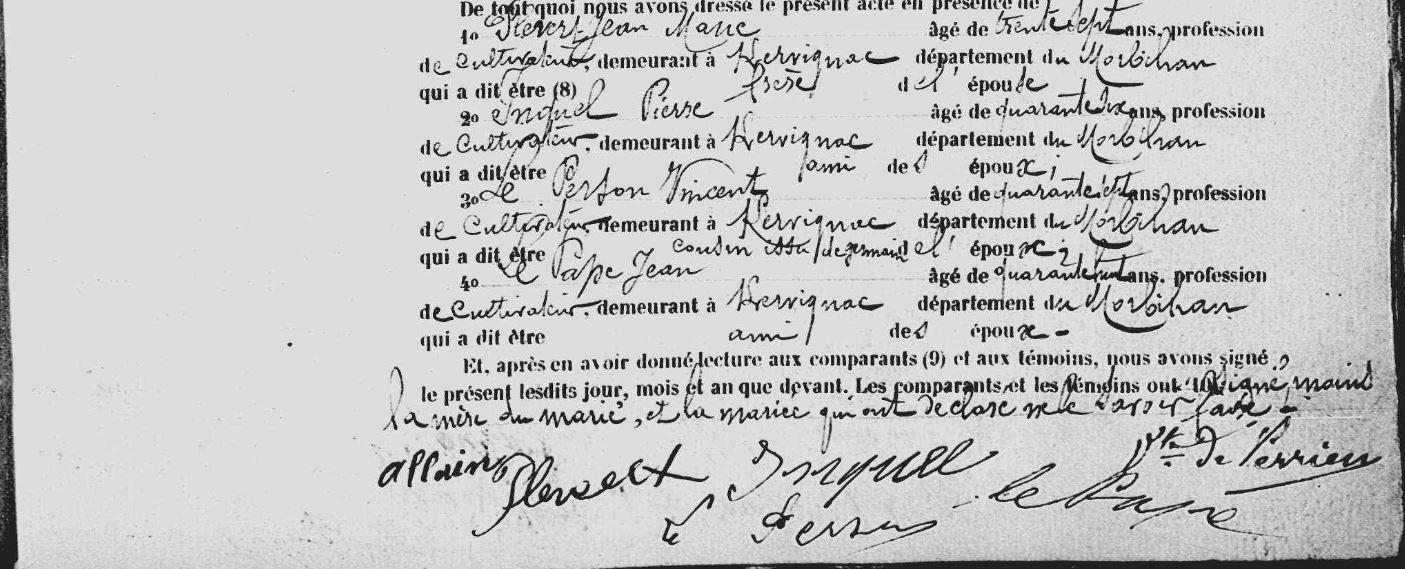 De tout quoi nous avons dressé le présent acte en présence de
1o Jean Marie âgé de trente sept ans, profession
de Cultivateur, demeurant à Kervignac département du Morbihan
qui a dit être (8) frère de l' épouse
2o Inquel Pierre âgé de quarante ans, profession
de Cultivateur, demeurant à Kervignac département du Morbihan
qui a dit être ami des époux;
3o Le Person Vincent âgé de quarante sept ans, profession
de Cultivateur, demeurant à Kervignac département du Morbihan
qui a dit être cousin issu de germain de l' époux;
4o Le Pape Jean âgé de quarante huit ans, profession
de Cultivateur, demeurant à Kervignac département du Morbihan
qui a dit être ami des époux -
Et, après en avoir donné lecture aux comparants (9) et aux témoins, nous avons signé
le présent lesdits jour, mois et an que devant. Les comparants et les témoins ont (10) signé, moins
la mère du marié, et la mariée qui ont déclaré ne le savoir faire -
allain Inquel Vte de Perrien
Le Person le Pape